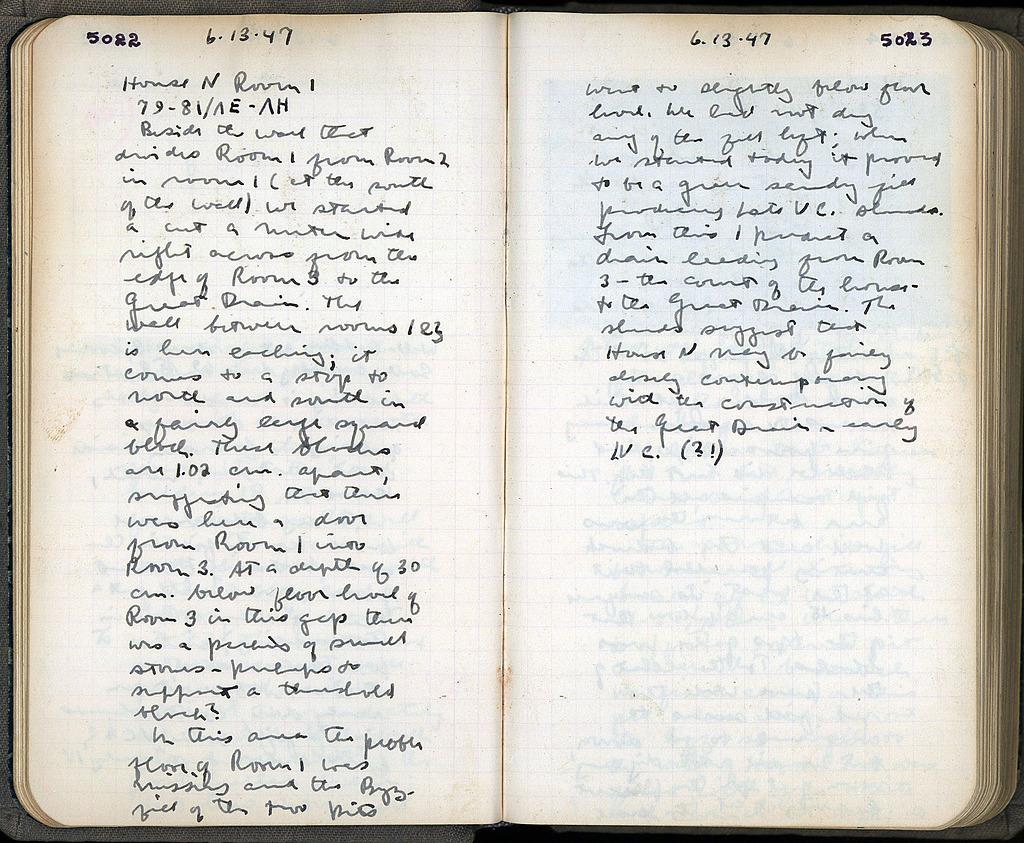 5022
6.13.47
House N Room 1
79-81/ΛE-ΛH
Beside the wall that
divides Room 1 from Room 2
in room 1 (at the south
of the wall) we started
a cut a meter wide
right across from the
edge of Room 3 to the
Great Drain. The
wall between rooms 1 & 3
is here lacking; it
comes to a stop to
north and south in
a fairly large squared
block. These blocks
are 1.02 cm. apart,
suggesting that there
was here a door
from Room 1 into
Room 3. At a depth of 30
cm. below floor level of
Room 3 in this gap there
was a packing of small
stones - perhaps to
support a threshold
block?
In this area the pebble
floor of Room 1 was
missing and the Byz.
fill of the two pits
6.13.47
5023
went to slightly below floor
level. We had not dug
any of the fill left; when
we started today it proved
to be a green sandy fill
producing late V C. sherds.
From this I predict a
drain leading from Room
3 - the court of the house -
to the Great Drain. The
sherds suggest that
House N may be fairly
closely contemporary
with the construction of
the Great Drain - early
IV C. (?!)